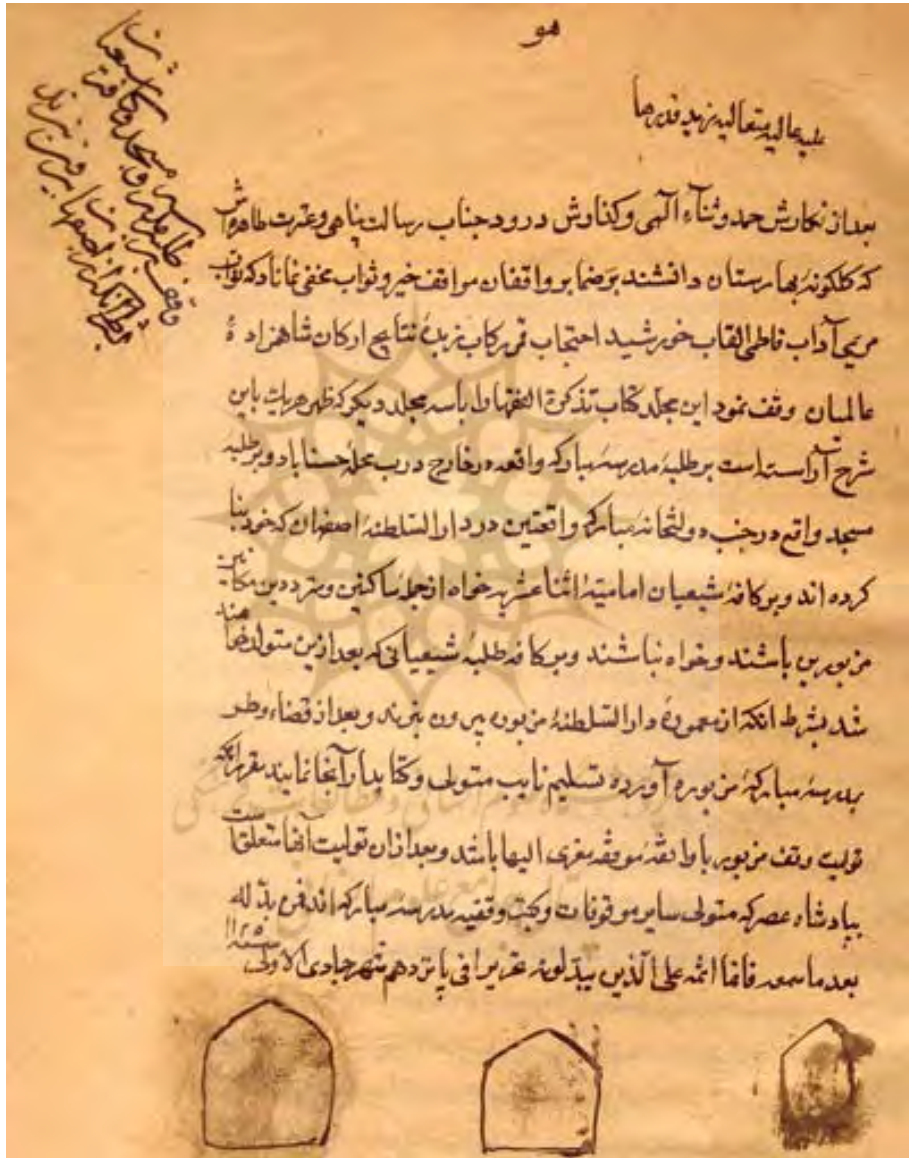 هو
علیه عالیه متعالیه زید قدرها
بعد از نگارش حمد و ثنآء الهی و گذارش درود جناب رسالت پناهی و عترت طاهره اش
که گلگونهٔ بهارستان دانشند بر ضمایر واقفان مواقف خیر و ثواب مخفی نماناد که نواب
مریمی آداب فاطمی القاب خورشید احتجاب قمر رکاب زبدهٔ نتایج ارکان شاهزادهٔ
عالمیان وقف نمود این مجلد کتاب تذکرة الفقها را با سه مجلد دیگر که ظهر هریک باین
شرح آراسته است بر طلبهٔ مدرسهٔ مبارکه واقعه در خارج درب محلهٔ حسناباد و بر طلبه
مسجد واقع در جنب دولتخانهٔ مبارکه واقعتین در دار السلطنهٔ اصفهان که خود بنا
کرده اند و بر کافهٔ شیعیان امامیهٔ اثنا عشریه خواه از جمله ساکنین و مترددین مکانین
مزبورین باشند و خواه نباشند و بر کافه طلبهٔ شیعیانی که بعد ازین متولد خواهند
شد بشرط انکه از معمورهٔ دار السلطنهٔ مزبوره بیرون نبرند و بعد از قضاء وطر
بمدرسهٔ مبارکهٔ مزبوره آورده تسلیم نایب متولی و کتابدار آنجا نمایند مقرر انکه
تولیت وقف مزبور با واقفهٔ موفقه معزی الیها باشد و بعد از ان تولیت آنها متعلقست
بپادشاه عصر که متولی سایر موقوفات و کتب وقفیه مدرسهٔ مبارکه اند فمن بدله
بعد ما سمعه فانما اثمه علی الذین یبدلونه تحریرا فی پانزدهم شهر جمادی الاولی